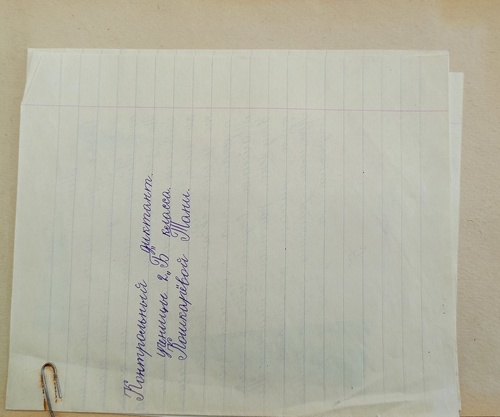 Контрольный диктант.
ученицы 2 „В" класса.
Пошкарёвой Тани.